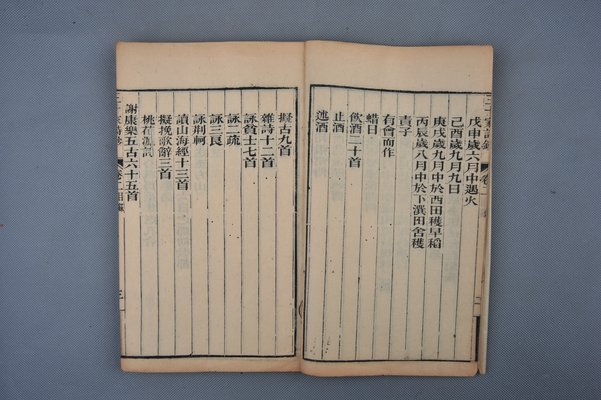 戊申歲六月中遇火
己酉歲九月九日
庚戌歲九月中於西田穫早稻
丙辰歲八月中於下潠田舍穫
責子
有會而作
蜡日
飲酒二十首
止酒
述酒
擬古九首
雜詩十二首
詠貧士七首
詠二疏
詠三良
詠荆軻
讀山海經十三首
擬挽歌辭三首
桃花源記
謝康樂五古六十五首